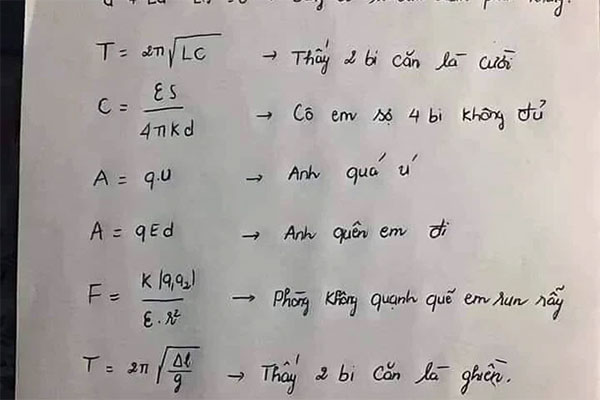 T = 2π√LC → Thấy 2 bi căn là cười
C = εS / 4πKd → Cô em sợ 4 bi không đủ
A = q.U → Anh quá ú
A = qEd → Anh quên em đi
F = K|q₁q₂| / ε.r² → Phòng không quạnh quẽ em run rẫy
T = 2π√Δl/g → Thấy 2 bi căn là ghiền.